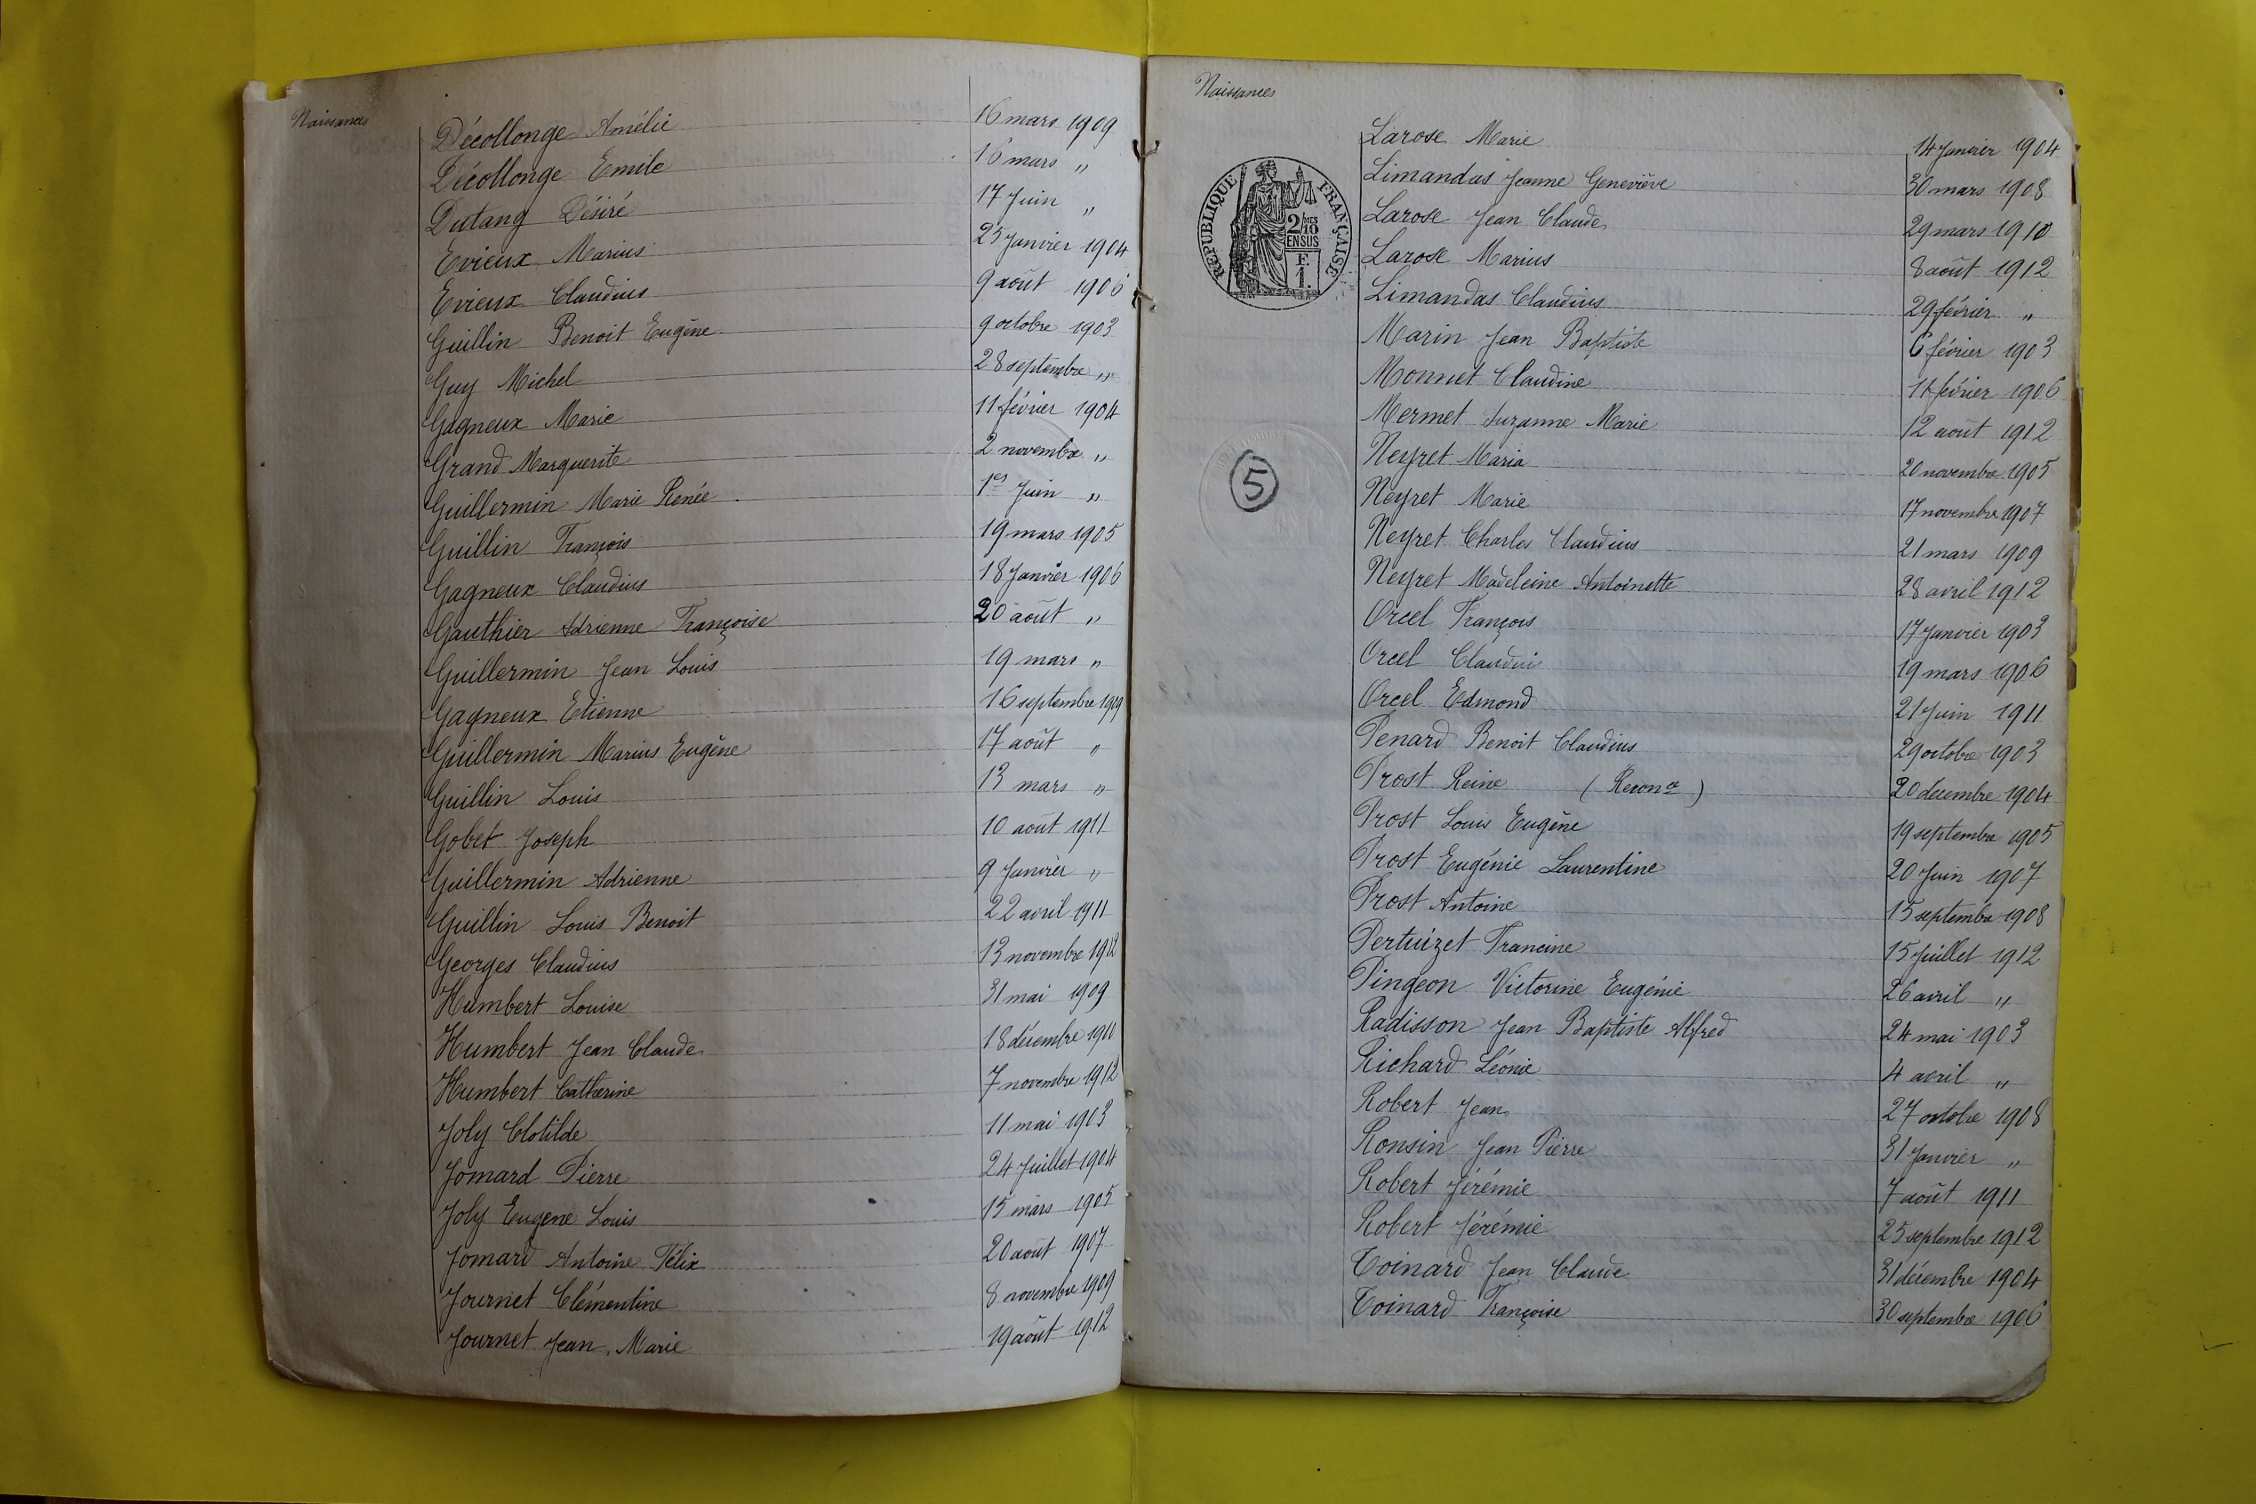 Naissances
Décollonge Amélie 16 mars 1909
Décollonge Emile 16 mars "
Dutang Désiré 17 Juin "
Evieux Marius 25 Janvier 1904
Evieux Claudius 9 août 1906
Guillin Benoit Eugène 9 octobre 1903
Guy Michel 28 septembre "
Gagneux Marie 11 février 1904
Grand Marguerite 2 novembre "
Guillermin Marie Renée 1er Juin "
Guillin François 19 mars 1905
Gagneux Claudius 18 Janvier 1906
Gauthier Adrienne Françoise 20 août "
Guillermin Jean Louis 19 mars "
Gagneux Etienne 16 septembre 1909
Guillermin Marius Eugène 17 août "
Guillin Louis 13 mars "
Gobet Joseph 10 août 1911
Guillermin Adrienne 9 Janvier "
Guillin Louis Benoit 22 avril 1911
Georges Claudius 13 novembre 1912
Humbert Louise 31 mai 1909
Humbert Jean Claude 18 décembre 1910
Humbert Catherine 7 novembre 1912
Joly Clotilde 11 mai 1903
Jomard Pierre 24 Juillet 1904
Joly Eugene Louis 15 mars 1905
Jomard Antoine Félix 20 août 1907
Journet Clémentine 8 novembre 1909
Journet Jean Marie 19 août 1912
Naissances
RÉPUBLIQUE FRANÇAISE
2/10 MES
EN SUS
F.
1.
5
Larose Marie 14 Janvier 1904
Limandas Jeanne Geneviève 30 mars 1908
Larose Jean Claude 29 mars 1910
Larose Marius 8 août 1912
Limandas Claudius 29 février "
Marin Jean Baptiste 6 février 1903
Monnet Claudine 11 février 1906
Mermet Suzanne Marie 12 août 1912
Neyret Maria 20 novembre 1905
Neyret Marie 17 novembre 1907
Neyret Charles Claudius 21 mars 1909
Neyret Madeleine Antoinette 28 avril 1912
Orcel François 17 Janvier 1903
Orcel Claudius 19 mars 1906
Orcel Edmond 21 Juin 1911
Penard Benoit Claudius 29 octobre 1903
Prost Reine (Reconce) 20 décembre 1904
Prost Louis Eugène 19 septembre 1905
Prost Eugénie Laurentine 20 Juin 1907
Prost Antoine 15 septembre 1908
Pertuizet Francine 15 Juillet 1912
Pingeon Victorine Eugénie 26 avril "
Radisson Jean Baptiste Alfred 24 mai 1903
Richard Léonie 4 avril "
Robert Jean 27 octobre 1908
Ronsin Jean Pierre 31 Janvier "
Robert Jérémie 7 août 1911
Robert Jérémie 25 septembre 1912
Toinard Jean Claude 31 décembre 1904
Toinard Françoise 30 septembre 1906